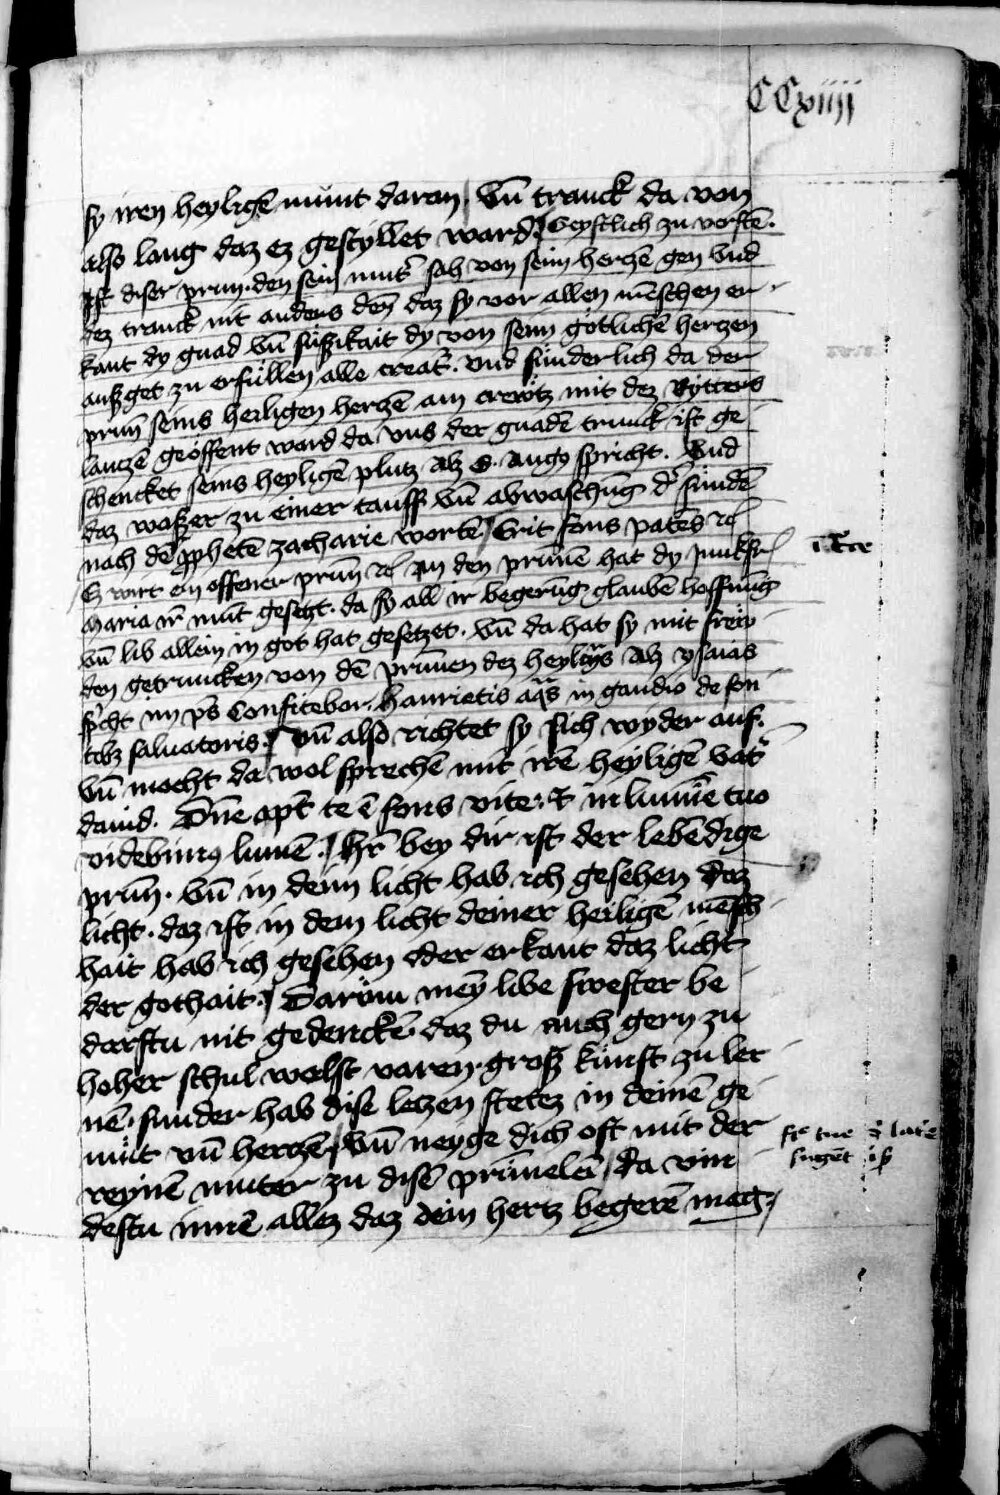 CCxiiij
sy iren heyligē munt daran / Vn̄ tranck da von
also lang daz ez gestyllet ward / Geystlich zu vorstē.
Ist diser prun. den sein mut̄ sah von seim hertzē gen Vnd
dez tranck nit anders deñ daz sy vor allen mēschen er
kant dy gnad Vn̄ süßikait dy von seim götlichē hertzen
außget zu erfüllen alle creat̄. Vnd sünderlich da der
prun̄ seins heiligen hertzē am crewtz mit dez Rytters
lantzē geöffent ward da vns der gnadē trunck ist ge
schencket seins heyligē plutz Alz S. Augꝯ spricht. Vnd
daz waßer zu einer tauff Vn̄ abwaschūg d̄ sündē
nach dē ꝓphetē zacharie wortē / Erit fons patēs ꝛc
Ez wirt ein offener prun̄ ꝛc In den prunē hat dy junkfr̄
Maria ir̄ munt gesetzt. da sy all ir begerūg glaubē hoffnūg
Vn̄ lib allein in got hat gesetzet. Vn̄ da hat sy mit frew
den getruncken von dē prunnen dez heylāds Alz ysaias
sp̄cht im ps̄ Confitebor. Haurietis aq̄s in gaudio de fon
tibz saluatoris. / Vn̄ also richtet sy sich wyder auf.
Vn̄ mocht da wol sprechē mit irē heyligē vat̄
dauid. Dn̄e apt̄ te ē fons vite. Et in lumīe tuo
videbimꝯ lumē. / Hr̄ bey dir ist der lebēdige
prun̄. Vn̄ in deim licht hab ich gesehen daz
licht. daz ist in dem licht deiner heiligē mēsch
hait hab ich gesehen oder erkant daz licht
der gothait. / Darüm mey̅ libe swester be
darftu nit gedenckē daz du auch gern zu
hoher schul wolst varen. groß künst zu ler
nē. sunder hab dise letzen stetez in deinē ge
müt vn̄ hertzē / Vn̄ neyge dich oft mit der
reynē muter zu disē prünelei / Da vin
destu innē allez daz dein hertz begerē mag,